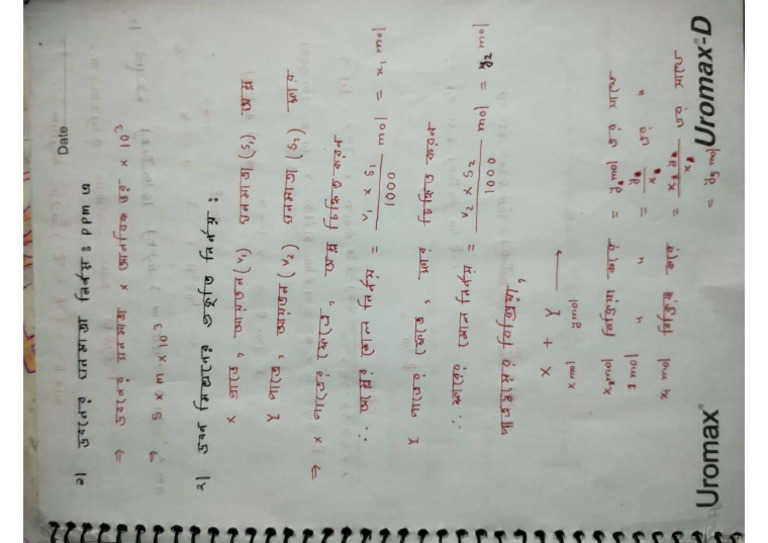 Date
১। দ্রবনের ঘনমাত্রা নির্নয় : ppm এ
⇒ দ্রবনের ঘনমাত্রা × আনবিক ভর × 10³
⇒ S × m × 10³
২। দ্রবন মিশ্রনের প্রকৃতি নির্নয় :
x পাত্রে, আয়তন (V₁) ঘনমাত্রা (S₁) অম্ল
Y পাত্রে, আয়তন (V₂) ঘনমাত্রা (S₂) ক্ষার
⇒ x পাত্রের ক্ষেত্রে, অম্ল চিহ্নিত করন
∴ অম্লের মোল নির্নয় = V₁ × S₁ / 1000 mol = x₁ mol
Y পাত্রের ক্ষেত্রে, ক্ষার চিহ্নিত করন
∴ ক্ষারের মোল নির্নয় = V₂ × S₂ / 1000 mol = y₂ mol
বিক্রিয়া,
X + Y ⟶
x mol y mol
mol বিক্রিয়া করে = mol এর সাথে
1 mol " " = এর "
mol বিক্রিয়া করে = এর সাথে
= mol
Uromax® Uromax®-D